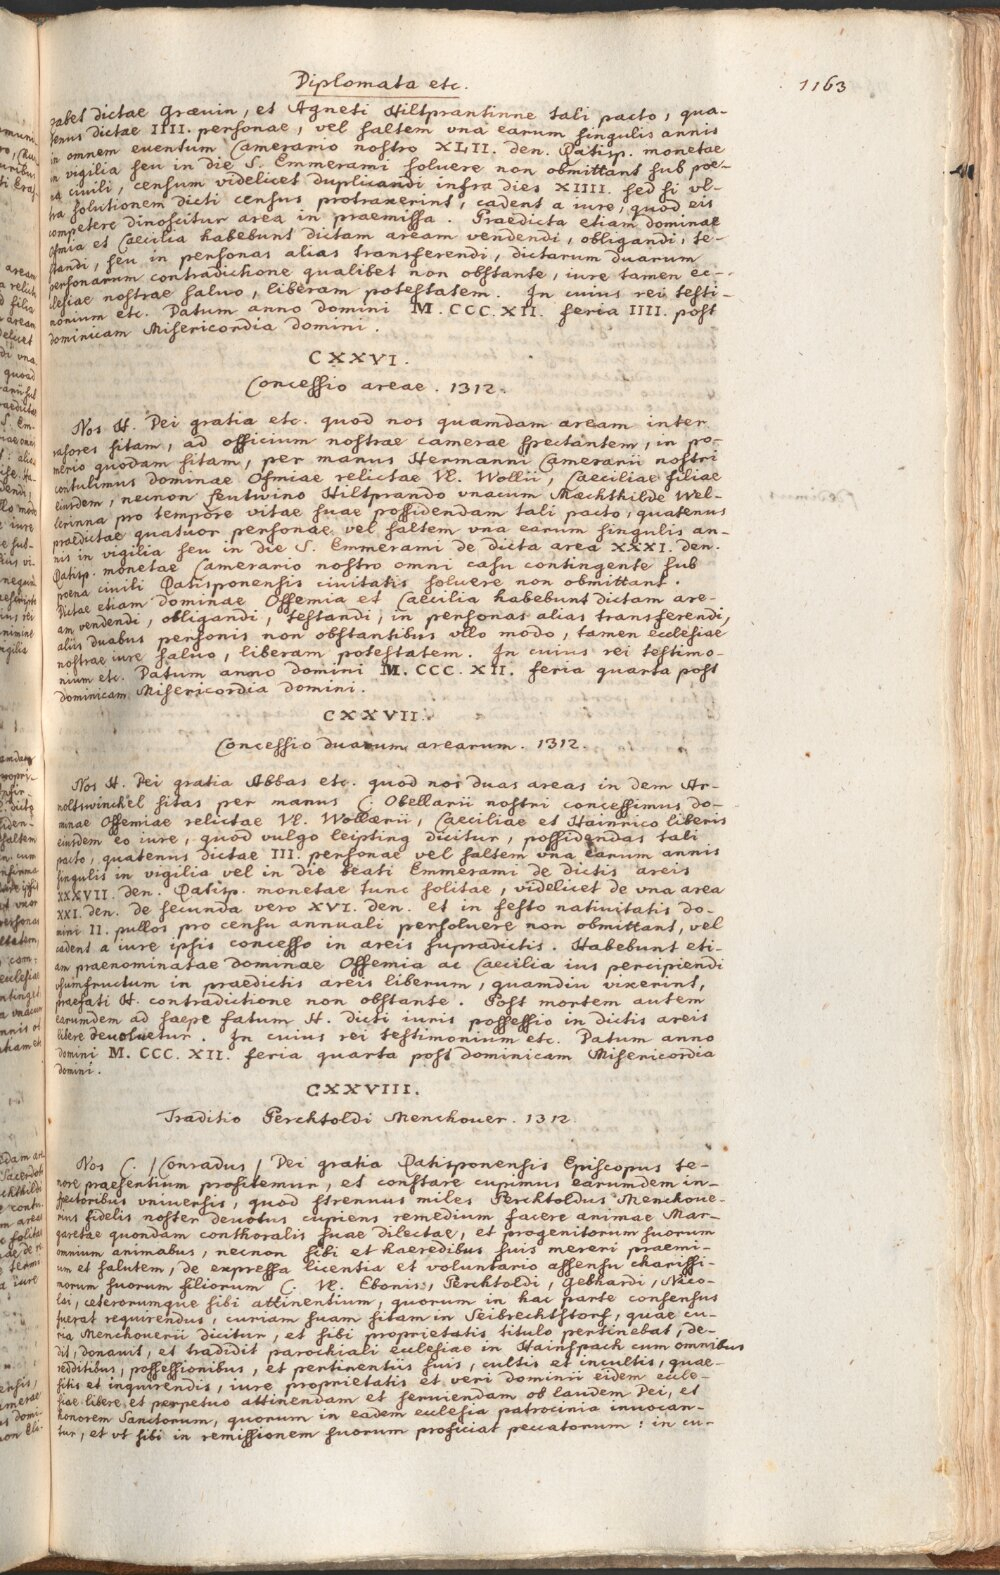 Diplomata etc.
1163
zabet dictae Graevin, et Agneti Hiltprantinne tali pacto, qua-
tenus dictae IIII. personae, vel saltem vna earum singulis annis
in omnem euentum Camerario nostro XLII. den. Ratisp. monetae
in vigilia seu in die S. Emmerami soluere non obmittant sub poe-
na ciuili, censum videlicet duplicandi infra dies XIIII. sed si vl-
tra solutionem dicti census protraxerint, cadent a iure, quod eis
competere dinoscitur area in praemissa. Praedicta etiam dominae
Osmia et Caecilia habebunt dictam aream vendendi, obligandi, te-
standi, seu in personas alias transferendi, dictarum duarum
personarum contradictione qualibet non obstante, iure tamen ec-
clesiae nostrae saluo, liberam potestatem. In cuius rei testi-
monium etc. Datum anno domini M. CCC. XII. feria IIII. post
dominicam Misericordia domini.
CXXVI.
Concessio areae. 1312.
Nos H. Dei gratia etc. quod nos quamdam aream inter
rasores sitam, ad officium nostrae camerae spectantem, in po-
merio quodam sitam, per manus Hermanni Camerarii nostri
contulimus dominae Osmiae relictae Vl. Wollii, Caeciliae filiae
eiusdem, necnon Leutwino Hiltprando vnacum Maechthilde Wel-
lerinna pro tempore vitae suae possidendam tali pacto, quatenus
praedictae quatuor personae vel saltem vna earum singulis an-
nis in vigilia seu in die S. Emmerami de dicta area XXXI. den.
Ratisp. monetae Camerario nostro omni casu contingente sub
poena ciuili Ratisponensis ciuitatis soluere non obmittant.
Dictae etiam dominae Offemia et Caecilia habebunt dictam are-
am vendendi, obligandi, testandi, in personas alias transferendi,
aliis duabus personis non obstantibus vllo modo, tamen ecclesiae
nostrae iure saluo, liberam potestatem. In cuius rei testimo-
nium etc. Datum anno domini M. CCC. XII. feria quarta post
dominicam Misericordia domini.
CXXVII.
Concessio duarum arearum. 1312.
Nos H. Dei gratia Abbas etc. quod nos duas areas in dem Ar-
noltswinchel sitas per manus C. Obellarii nostri concessimus do-
minae Offemiae relictae Vl. Wollaerii, Caeciliae et Hainrico liberis
eiusdem eo iure, quod vulgo leipting dicitur, possidendas tali
pacto, quatenus dictae III. personae vel saltem vna earum annis
singulis in vigilia vel in die beati Emmerami de dictis areis
XXXVII. den. Ratisp. monetae tunc solitae, videlicet de vna area
XXI. den. de secunda vero XVI. den. et in festo natiuitatis do-
mini II. pullos pro censu annuali persoluere non obmittant, vel
cadent a iure ipsis concesso in areis supradictis. Habebunt eti-
am praenominatae dominae Offemia ac Caecilia ius percipiendi
vsumfructum in praedictis areis liberum, quamdiu vixerint,
praefati H. contradictione non obstante. Post mortem autem
earumdem ad saepe fatum H. dicti iuris possessio in dictis areis
libere deuoluetur. In cuius rei testimonium etc. Datum anno
domini M. CCC. XII. feria quarta post dominicam Misericordia
domini.
CXXVIII.
Traditio Perchtoldi Menchouer. 1312
Nos C. /Conradus/ Dei gratia Ratisponensis Episcopus te-
nore praesentium profitemur, et constare cupimus earumdem in-
spectoribus vniuersis, quod strenuus miles Perchtoldus Menchoue-
rius fidelis noster deuotus cupiens remedium facere animae Mar-
garetae quondam conthoralis suae dilectae, et progenitorum suorum
omnium animabus, necnon sibi et haeredibus suis mereri praemi-
um et salutem, de expressa licentia et voluntario assensu charissi-
morum suorum filiorum C. Vl. Ebonis, Perchtoldi, Gebhardi, Nico-
lai, ceterorumque sibi attinentium, quorum in hac parte consensus
fuerat requirendus, curiam suam sitam in Seibrechtstorf, quae cu-
ria Menchouerii dicitur, et sibi proprietatis titulo pertinebat, de-
dit, donauit, et tradidit parochiali ecclesiae in Hainspach cum omnibus
redditibus, possessionibus, et pertinentiis suis, cultis et incultis, quae-
sitis et inquirendis, iure proprietatis et veri dominii eidem eccle-
siae libere et perpetuo attinendam et seruiendam ob laudem Dei, et
honorem Sanctorum, quorum in eadem ecclesia patrocinia inuocan-
tur, et vt sibi in remissionem suorum proficiat peccatorum: in cu-